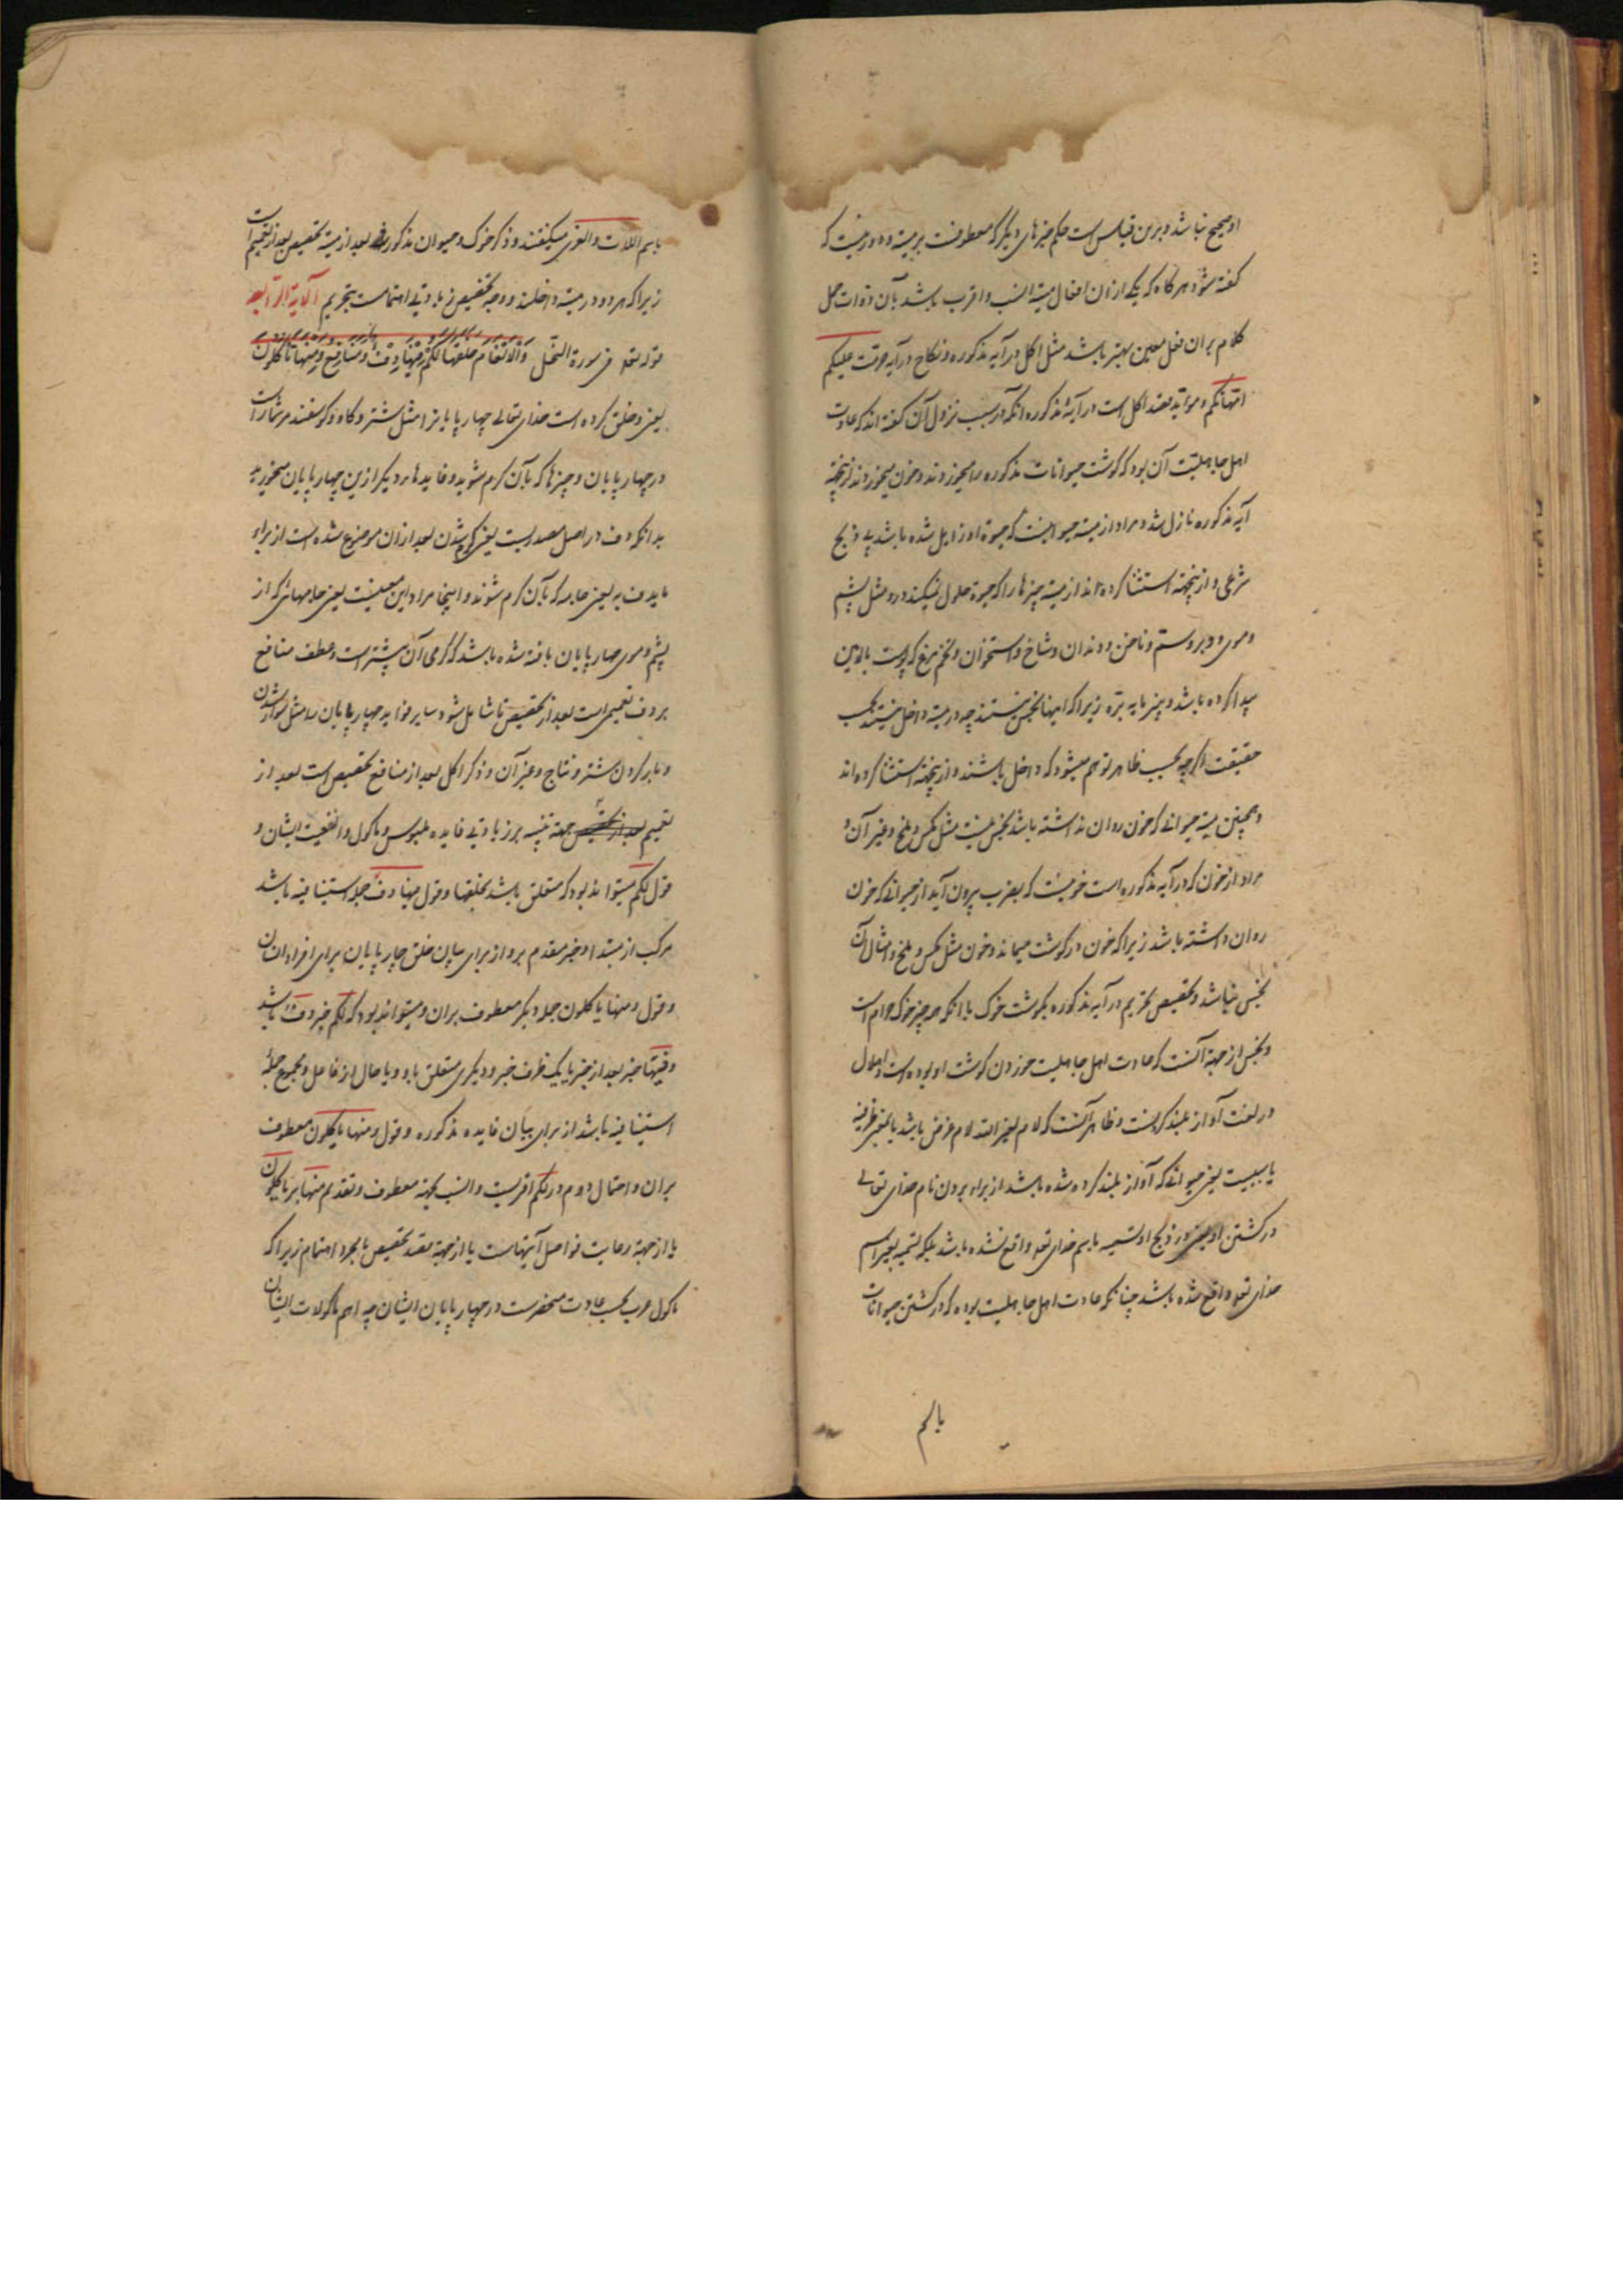 او صحیح نباشد و برین قیاس است حکم چیزهای دیگر که معطوفست بر میته و دور نیست که
گفته شود هر گاه که یکی از ان افعال میته انسب و اقرب باشد بآن ذوات حمل
کلام بران فعل معین بهتر باشد مثل اکل در آیه مذکوره و نکاح در آیه حرمت علیکم
امهاتکم و مؤید تقدیر اکل است در آیهٔ مذکوره انکه در سبب نزول آن گفته اند که عادت
اهل جاهلیت آن بود که گوشت حیوانات مذکوره را میخوردند و خون میخوردند ازینجهة
آیه مذکوره نازل شد و مراد از میته حیوانیست که حیوة او زایل شده باشد بی ذبح
شرعی و ازینجهته استثنا کرده اند از میته چیزها را که حیوة حلول نمیکند درو مثل پشم
و موی و پر و سم و ناخن و دندان و شاخ و استخوان و تخم مرغ که پوست بالایین
پیدا کرده باشد و پنیر مایه بره زیرا که اینها نجس نیستند چه در میته داخل نیستند بحسب
حقیقت اگر چه بحسب ظاهر توهم میشود که داخل باشند و ازینجهته استثنا کرده اند
و همچنین میته حیوانی که خون روان نداشته باشد نجس نیست مثل مگس و ملخ و غیر آن و
مراد از خون که در آیه مذکوره است خونیست که بضرب بیرون آید از حیوانی که خون
روان داشته باشد زیرا که خون در گوشت میماند و خون مثل مگس و ملخ و امثال آن
نجس نباشد و تخصیص تحریم در آیه مذکوره بگوشت خوک با انکه همه چیز خوک حرام است
و نجس از جهة آنست که عادت اهل جاهلیت خوردن گوشت او بوده است و اهلال
در لغت آواز بلند کردنست و ظاهر آنست که لام لغیر الله لام عوض باشد یا بمعنی ظرفیة
یا سببیت یعنی حیوانی که آواز بلند کرده شده باشد از برای بردن نام خدای تعالی
در کشتن او یعنی در ذبح او تسمیه باسم خدای تعه واقع نشده باشد بلکه تسمیه بغیر اسم
خدای تعه واقع شده باشد چنانکه عادت اهل جاهلیت بوده که در کشتن حیوانات
باسم
باسم اللات و العزی میگفتند و ذکر خوک و حیوان مذکور بعد از میته تخصیص بعد از تعمیم است
زیرا که هر دو در میته داخلند و وجه تخصیص زیادتی اهتمامست بتحریم الآیة الرابعه
قوله تعه فی سورة النحل وَالاَنْعَامَ خَلَقَهَا لَكُمْ فِيهَا دِفْءٌ وَمَنَافِعُ وَمِنْهَا تَأْكُلُونَ
یعنی و خلق کرده است خدای تعالی چهار پایانرا مثل شتر و گاو و گوسفند مر شما راست
در چهار پایان و چیزها که بآن گرم شوید و فایدهای دیگر ازین چهار پایان میخورید
بدانکه دف در اصل مصدریست یعنی گرم شدن بعد از ان موضوع شده است از برای
مایدف به یعنی جامه که بآن گرم شوند و اینجا مراد این معنیست یعنی جامهائی که از
پشم و موی چار پایان بافته شده باشد که گرمی آن بیشتر است و عطف منافع
بر دف تعمیم است بعد از تخصیص تا شامل شود سایر فواید چهار پایان را مثل سوار شدن
و بار کردن شتر و نتاج و غیر آن و ذکر اکل بعد از منافع تخصیص است بعد از
تعمیم جهة تنبیه بر زیادتی فایده ملبوس و ماکول و انفعیت ایشان و
قول لکم میتواند بود که متعلق باشد بخلقها و قول فیها دف جمله استینافیه باشد
مرکب از مبتدا و خبر مقدم برو از برای بیان خلق چار پایان برای افراد انسان
و قول و منها تاکلون جمله دیگر معطوف بران و میتواند بود که لکم خبر دف باشد
و فیها خبر بعد از خبر یا یک ظرف خبر و دیگری متعلق باو و یا حال از فاعل و مجموع جملهٔ
استینافیه باشد از برای بیان فایده مذکوره و قول و منها تاکلون معطوف
بران و احتمال دوم در لکم اقربست و انسب بجهته معطوف و تقدیم منها بر تاکلون
یا از جهة رعایت فواصل آیتهاست یا از جهة قصد تخصیص یا مجرد اهتمام زیرا که
ماکول عرب بحسب عادت منحصرست در چهار پایان ایشان چه اهم ماکولات ایشان